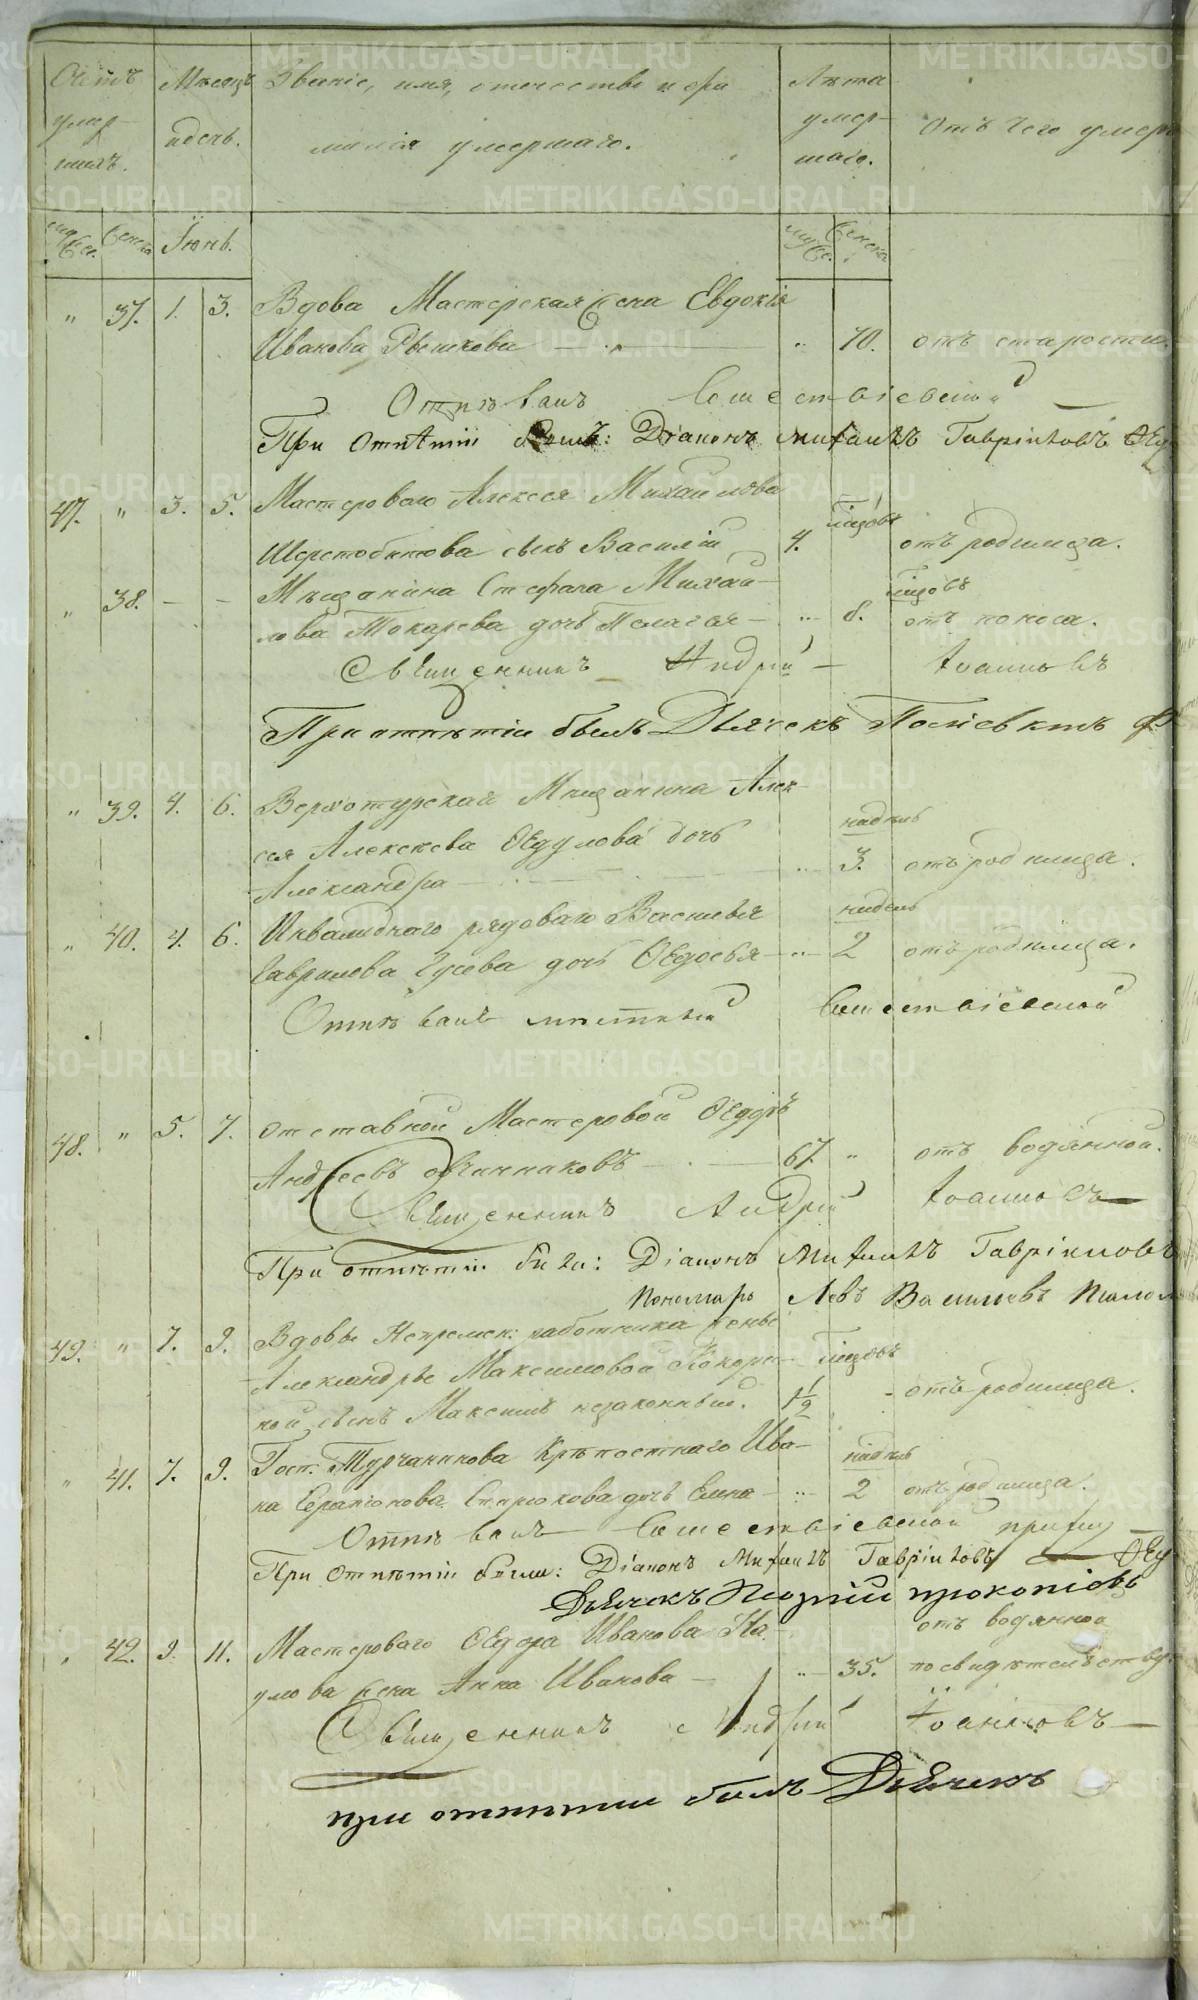 Счетъ умер-шихъ. Мѣсяцъ и день. Званіе, имя, отчество и фамилія умершаго. Лѣта умер-шаго. Отъ чего умеръ
муж. женска Іюнь. муж. женска
" 37. 1. 3. Вдова Мастерская жена Евдокія
Иванова — " 70. отъ старости.
Отпѣвалъ
При отпѣтіи были: Діаконъ Михаилъ Гавриловъ
47. " 3. 5. Мастероваго Алексея Михайлова
Шерстобитова сынъ Василій 4. мѣсяцовъ отъ родимца.
" 38. — — Мѣщанина Стефана Михай-
лова Токарева дочь Пелагея — " 8. мѣсяцовъ отъ поноса.
Священникъ Андрей Іоанновъ
При отпѣтіи былъ Дьячекъ
" 39. 4. 6. Верхотурскаго Мещанина Алек-
сея Алексеева Ѳедулова дочь
Александра — " 3. недѣль отъ родимца.
" 40. 4. 6. Инвалиднаго рядоваго Василья
Гаврилова Гусева дочь Ѳедосья — " 2 недѣль отъ родимца.
Отпѣвалъ
48. " 5. 7. отставной Мастеровой Ѳедоръ
Андреевъ Овчинниковъ — 67. " отъ водянной.
Священникъ Андрей Іоанновъ
При отпѣтіи были: Діаконъ Михаилъ Гавриловъ
Пономарь Левъ Васильевъ
49. " 7. 9. Вдовы Непремен: работника жены
Александры Максимовой Кокори-
ной сынъ Максимъ незаконный. 1½ мѣсяцовъ - отъ родимца.
" 41. 7. 9. Госп: Турчанинова Крѣпостнаго Ива-
на Серапіонова Старкова дочь Елена — " 2 недѣль отъ родимца.
Отпѣвалъ
При отпѣтіи были: Діаконъ Михаилъ Гавриловъ
Дьячекъ прокопіевъ
" 42. 9. 11. Мастероваго Ѳедора Иванова На-
умова жена Анна Иванова — " 35. отъ водянной
по свидѣтельству.
Священникъ Андрей Іоанновъ —
при отпѣтіи былъ Дьячекъ
METRIKI.GASO-URAL.RU